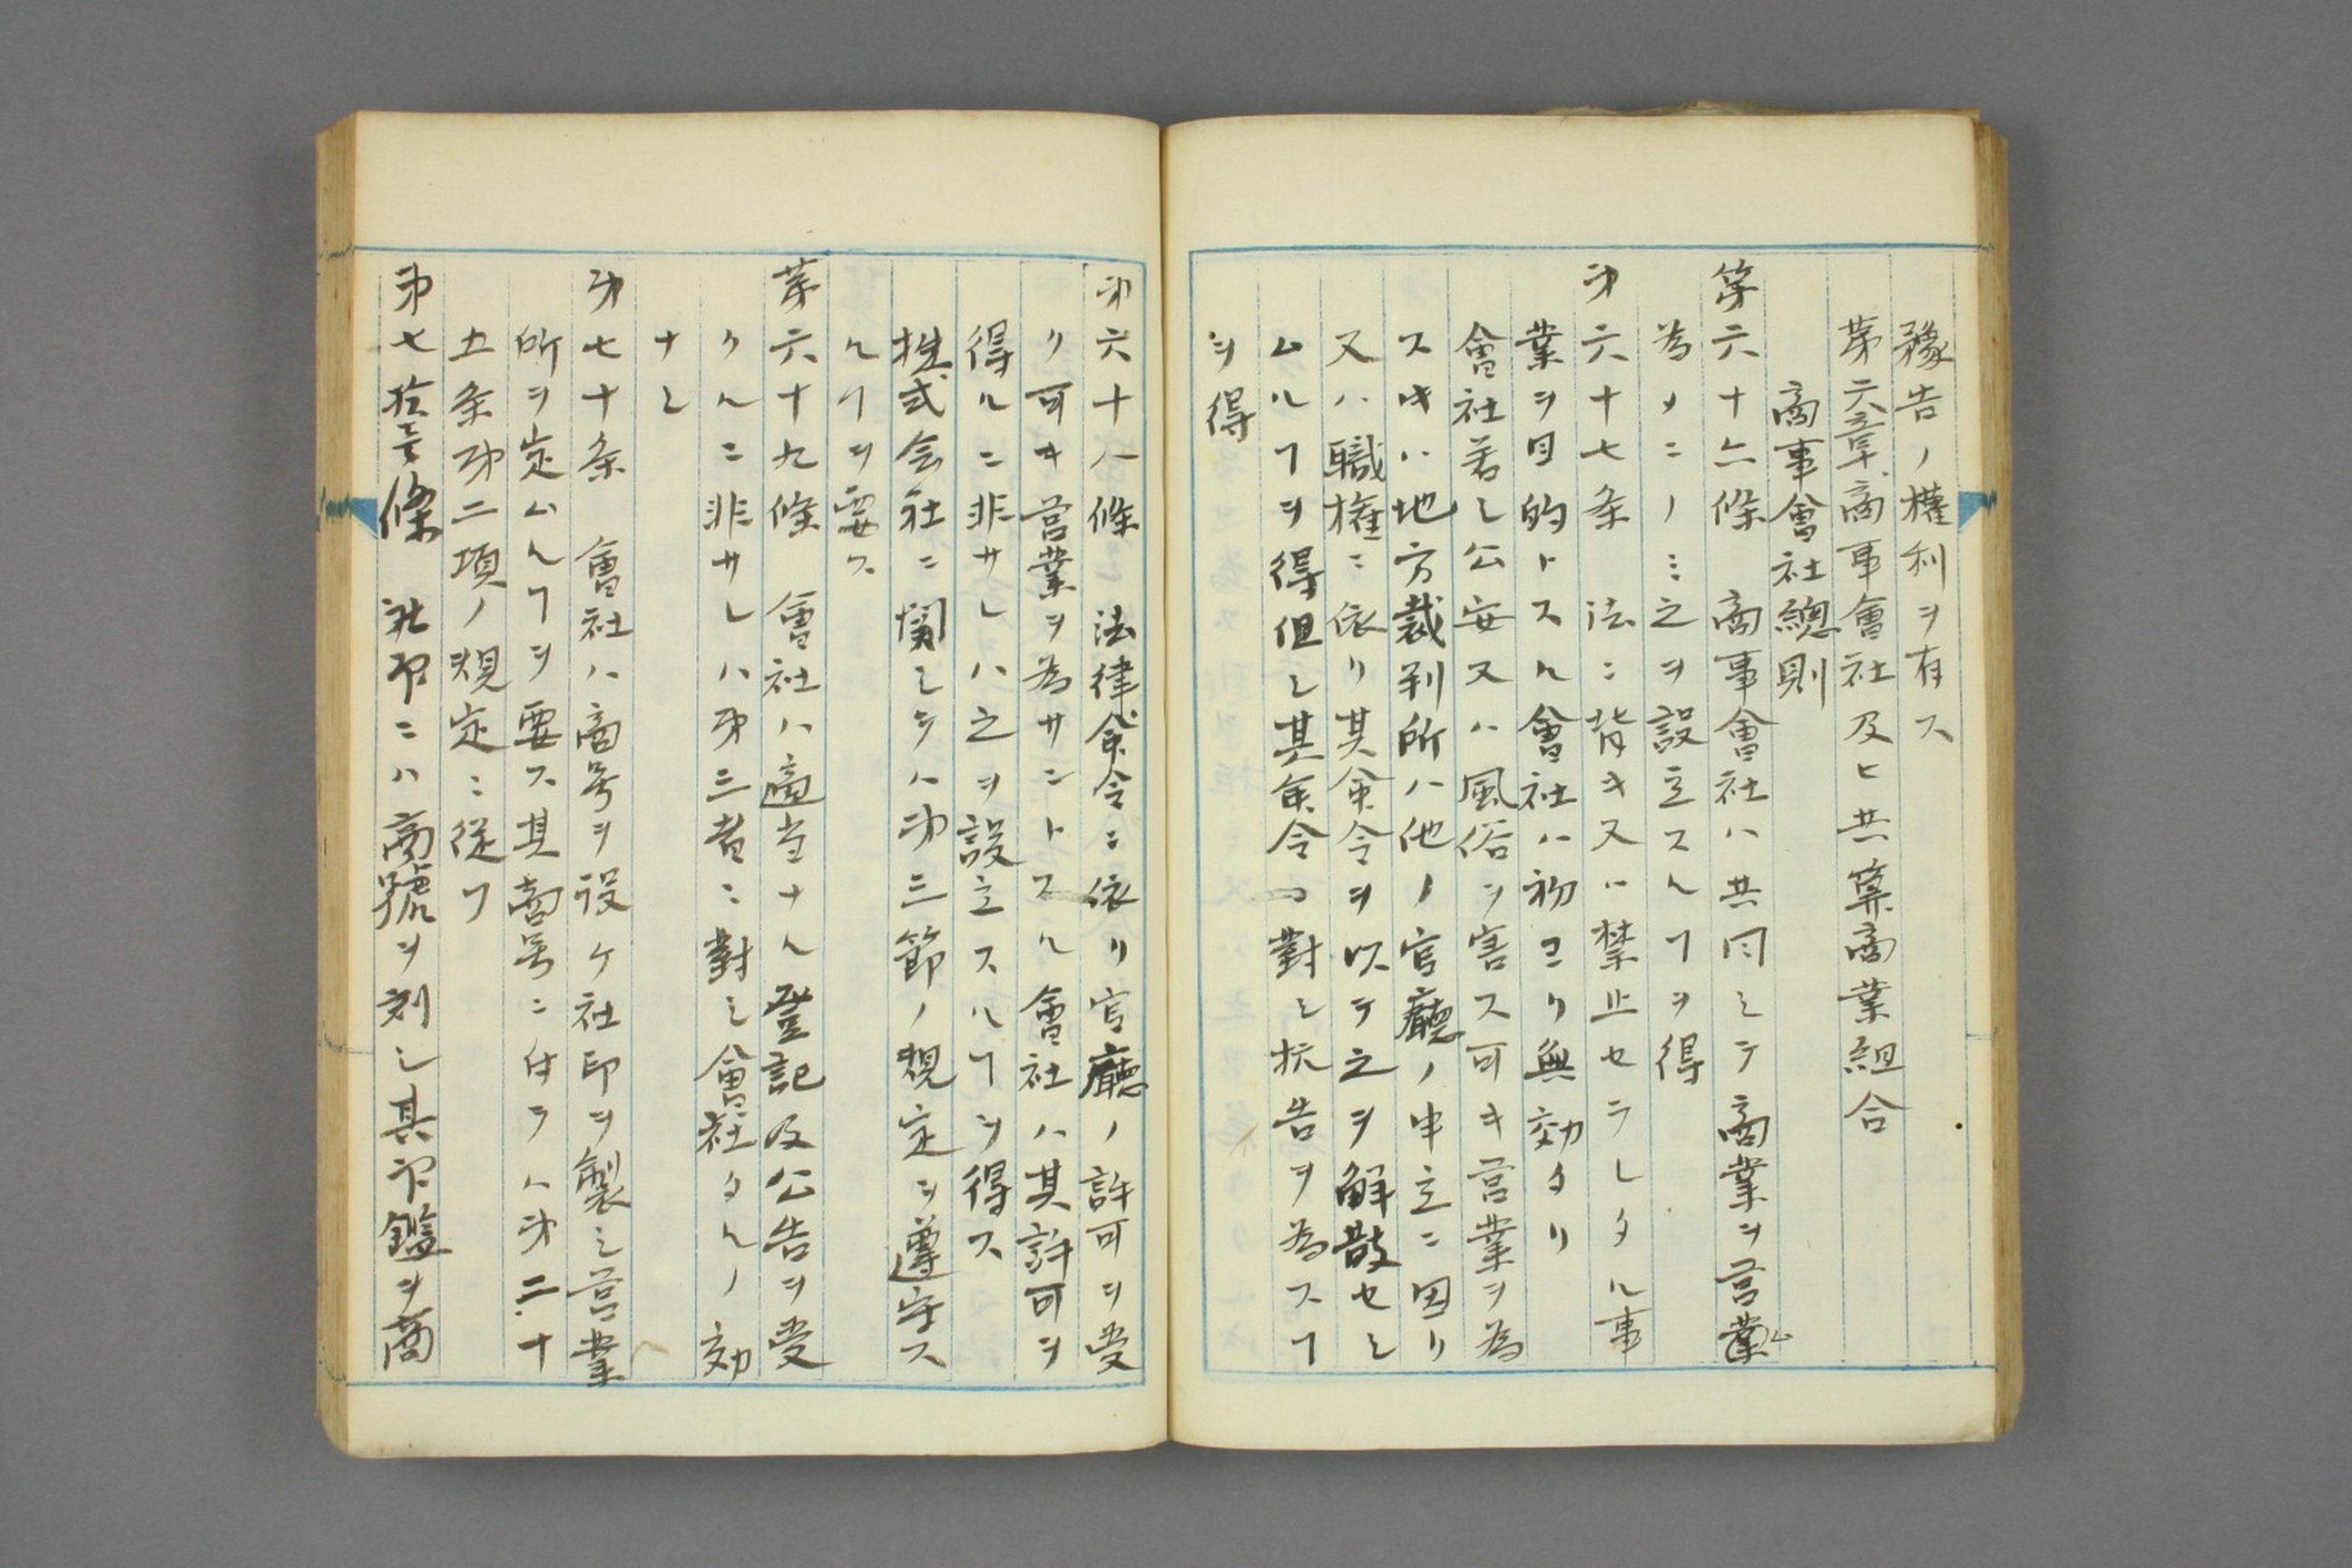 豫告ノ權利ヲ有ス
第六章商事會社及ヒ共算商業組合
商事會社總則
第六十六條 商事會社ハ共同シテ商業ヲ営業ム
為メニノミ之ヲ設立スルヿヲ得
第六十七条 法ニ背キ又ハ禁止セラレタル事
業ヲ目的トスル會社ハ初ヨリ無効タリ
會社若シ公安又ハ風俗ヲ害ス可キ営業ヲ為
スキハ地方裁判所ハ他ノ官廳ノ申立ニ因リ
又ハ職権ニ依リ其命令ヲ以テ之ヲ解散セシ
ムルヿヲ得但シ其命令ニ對シ抗告ヲ為スヿ
ヲ得
第六十八條 法律命令ニ依リ官廳ノ許可ヲ受
ク可キ営業ヲ為サントスル會社ハ其許可ヲ
得ルニ非サレハ之ヲ設立スルヿヲ得ス
株式会社ニ関シテハ第三節ノ規定ヲ遵守ス
ルヿヲ要ス
第六十九條 會社ハ適当ナル登記及公告ヲ受
クルニ非サレハ第三者ニ對シ會社タルノ効
ナシ
第七十条 會社ハ商号ヲ設ケ社印ヲ製シ営業
所ヲ定ムルヿヲ要ス其商号ニ付テハ第二十
五条第二項ノ規定ニ従フ
第七拾壹條 社印ニハ商號ヲ刻シ其印鑑ヲ商